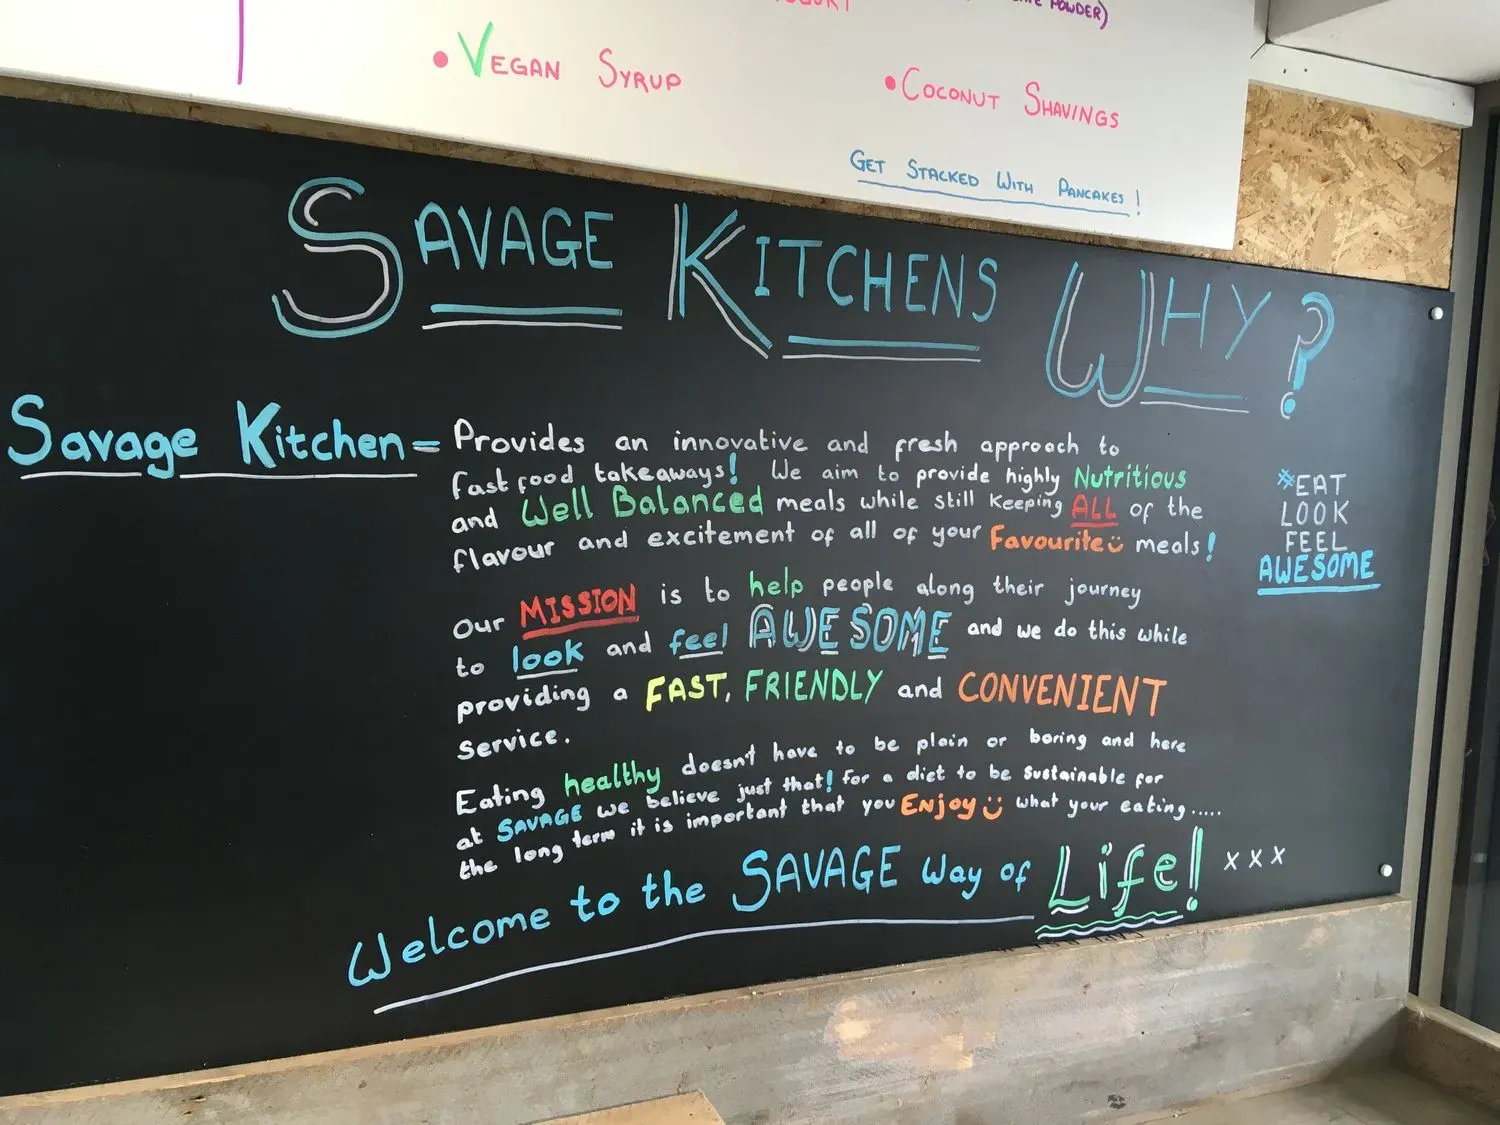 POWDER)
• VEGAN SYRUP
• COCONUT SHAVINGS
GET STACKED WITH PANCAKES!
SAVAGE KITCHENS WHY?
Savage Kitchen = Provides an innovative and fresh approach to
fast food takeaways! We aim to provide highly Nutritious
and Well Balanced meals while still keeping ALL of the
flavour and excitement of all of your Favourite meals!
Our MISSION is to help people along their journey
to look and feel AWESOME and we do this while
providing a FAST, FRIENDLY and CONVENIENT
service.
Eating healthy doesn't have to be plain or boring and here
at SAVAGE we believe just that! For a diet to be sustainable for
the long term it is important that you Enjoy what your eating.....
Welcome to the SAVAGE way of Life! xxx
#EAT
LOOK
FEEL
AWESOME